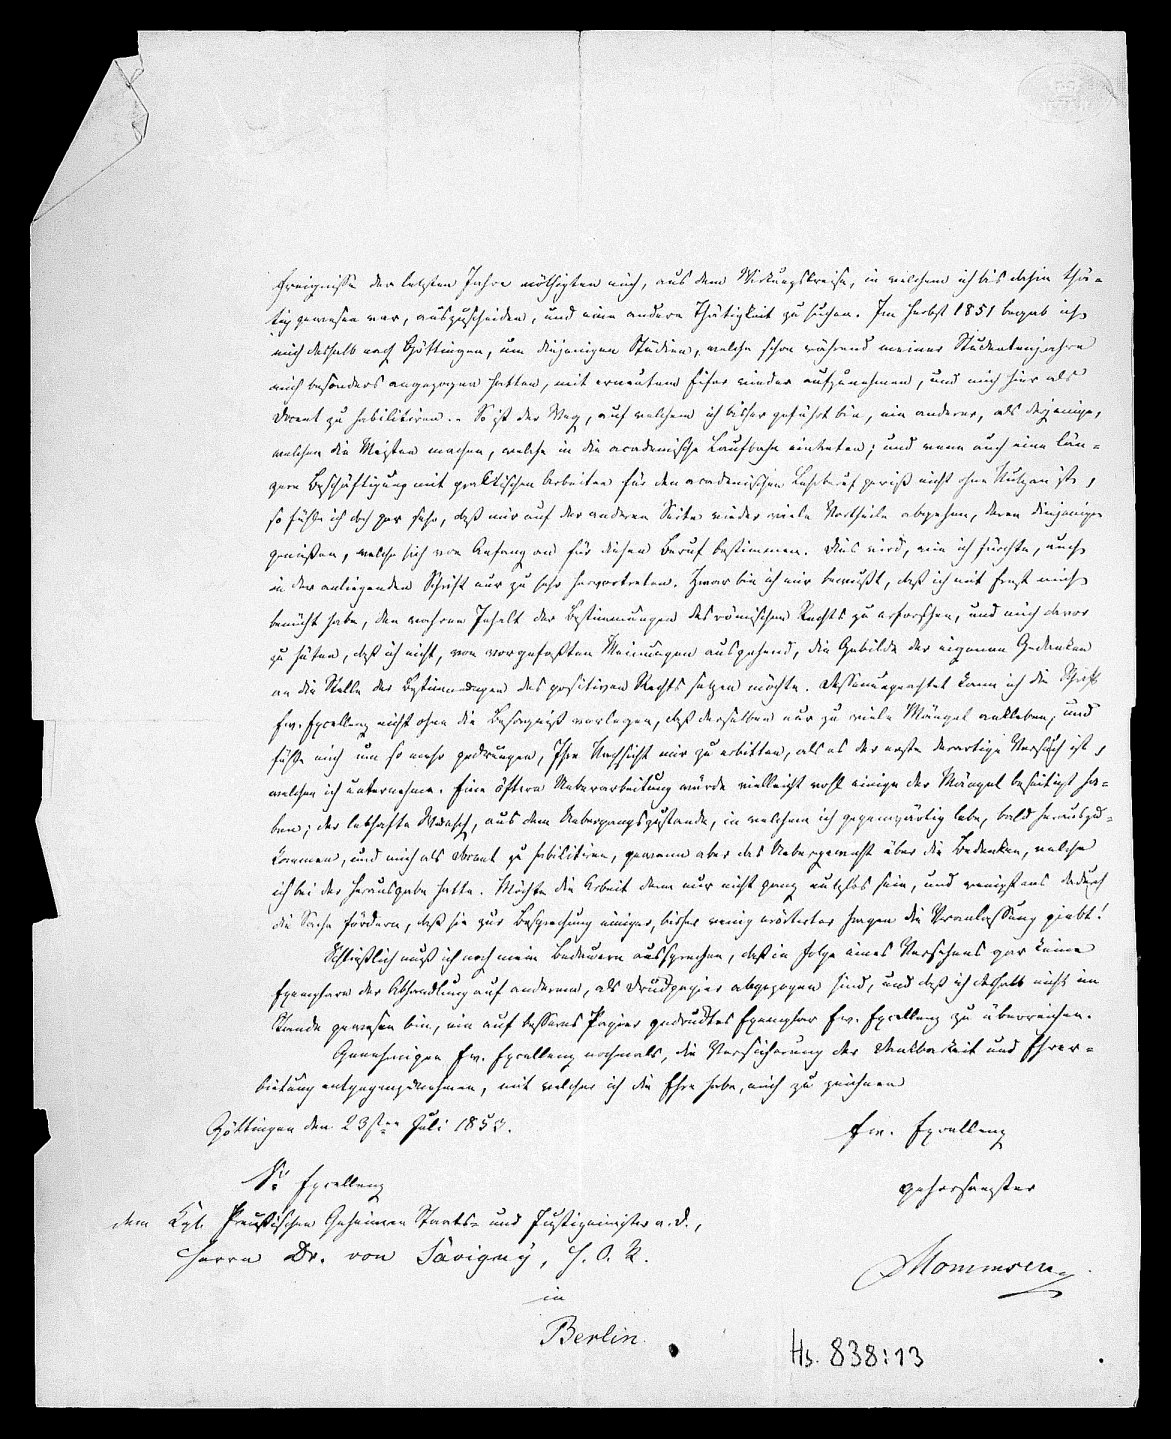 Ereignisse der letzten Jahre nöthigten mich, aus dem Wirkungskreise, in welchem ich bis dahin thä-
tig gewesen war, auszuscheiden, und eine andere Thätigkeit zu suchen. Im Herbst 1851 begab ich
mich deshalb nach Göttingen, um diejenigen Studien, welche schon während meiner Studentenjahre
mich besonders angezogen hatten, mit erneutem Eifer wieder aufzunehmen, und mich hier als
Docent zu habilitiren. – So ist der Weg, auf welchem ich bisher geführt bin, ein anderer, als derjenige,
welchen die Meisten machen, welche in die academische Laufbahn eintreten; und wenn auch eine län-
gere Beschäftigung mit practischen Arbeiten für den academischen Lehrberuf gewiß nicht ohne Nutzen ist,
so fühle ich doch gar sehr, daß mir auf der anderen Seite wieder viele Vortheile abgehen, deren diejenigen
genießen, welche sich von Anfang an für diesen Beruf bestimmen. Dies wird, wie ich fürchte, auch
in der anliegenden Schrift nur zu sehr hervortreten. Zwar bin ich mir bewußt, daß ich mit Ernst mich
bemüht habe, den wahren Inhalt der Bestimmungen des römischen Rechts zu erforschen, und mich davor
zu hüten, daß ich nicht, von vorgefaßten Meinungen ausgehend, die Gebilde der eigenen Gedanken
an die Stelle der Bestimmungen des positiven Rechts setzen möchte. Dessenungeachtet kann ich die Schrift
Ew. Excellenz nicht ohne die Besorgniß vorlegen, daß derselben nur zu viele Mängel ankleben, und
fühle mich um so mehr gedrungen, Ihre Nachsicht mir zu erbitten, als es der erste derartige Versuch ist,
welchen ich unternehme. Eine öftere Ueberarbeitung würde vielleicht wohl einige der Mängel beseitigt ha-
ben; der lebhafte Wunsch, aus dem Uebergangszustande, in welchem ich gegenwärtig lebe, bald herauszu-
kommen, und mich als Docent zu habilitiren, gewann aber das Uebergewicht über die Bedenken, welche
ich bei der Herausgabe hatte. Möchte die Arbeit denn nur nicht ganz nutzlos sein, und wenigstens dadurch
die Sache fördern, daß sie zur Besprechung einiger, bisher wenig erörterter Fragen die Veranlassung giebt!
Schließlich muß ich noch mein Bedauern aussprechen, daß in Folge eines Versehens gar keine
Exemplare der Abhandlung auf anderem, als Druckpapier abgezogen sind, und daß ich deshalb nicht im
Stande gewesen bin, ein auf besseres Papier gedrucktes Exemplar Ew. Excellenz zu überreichen.
Genehmigen Ew. Excellenz nochmals, die Versicherung der Dankbarkeit und Ehrer-
bietung entgegenzunehmen, mit welcher ich die Ehre habe, mich zu zeichnen
Göttingen den 23sten Juli 1853.
Ew. Excellenz
Sr Excellenz
gehorsamster
dem Kgl. Preußischen Geheimen Staats- und Justizminister a. d.,
Herrn Dr. von Savigny, H. O. R.
Mommsen
in
Berlin.
Hs. 838:13